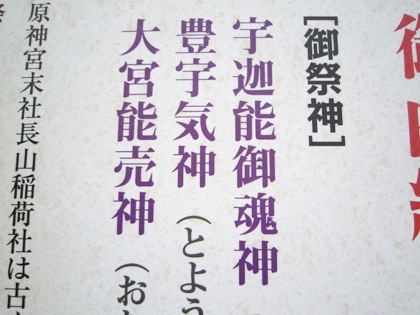 [御祭神]
宇迦能御魂神
豊宇気神(とよう
大宮能売神(お
原神宮末社長山稲荷社は古